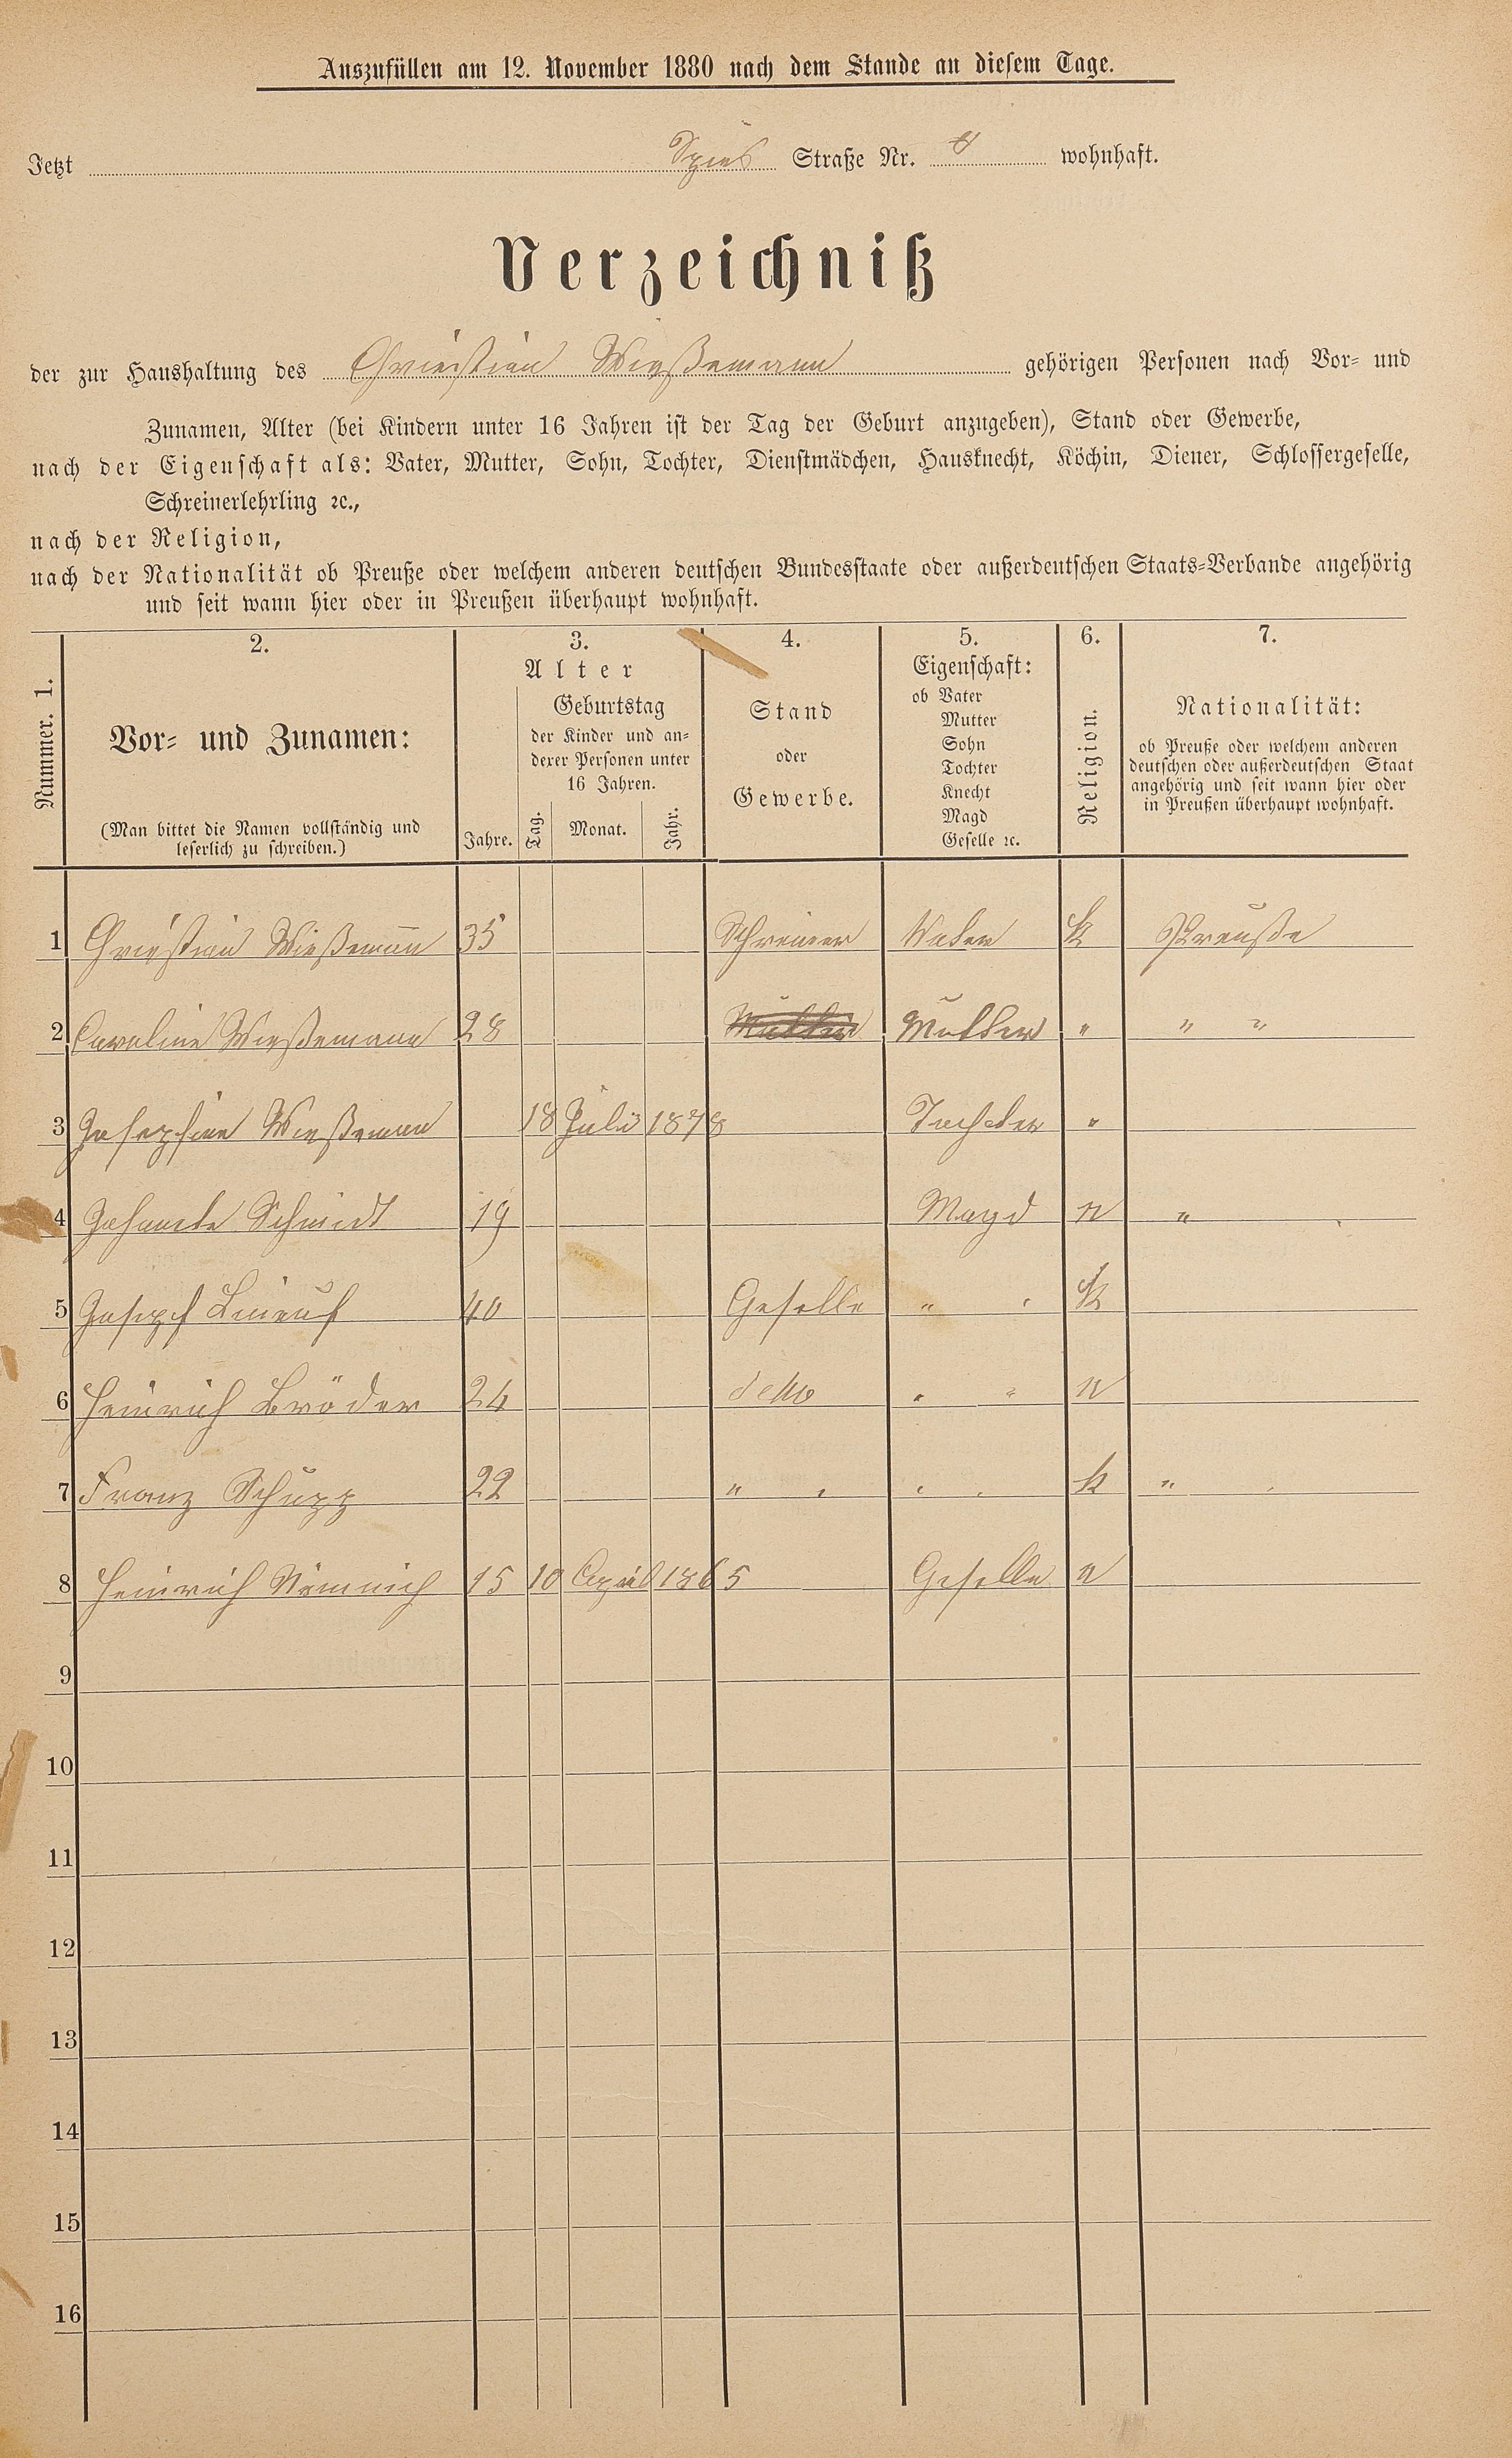 Auszufüllen am 12. November 1880 nach dem Stande an diesem Tage.
Jetzt Spies Straße Nr. wohnhaft.
Verzeichniß
der zur Haushaltung des Christian Wießemann gehörigen Personen nach Vor- und
Zunamen, Alter (bei Kindern unter 16 Jahren ist der Tag der Geburt anzugeben), Stand oder Gewerbe,
nach der Eigenschaft als: Vater, Mutter, Sohn, Tochter, Dienstmädchen, Hausknecht, Köchin, Diener, Schlossergeselle,
Schreinerlehrling ꝛc.,
nach der Religion,
nach der Nationalität ob Preuße oder welchem anderen deutschen Bundesstaate oder außerdeutschen Staats-Verbande angehörig
und seit wann hier oder in Preußen überhaupt wohnhaft.
Nummer. 1.
2.
Vor- und Zunamen:
(Man bittet die Namen vollständig und
leserlich zu schreiben.)
3.
Alter
Jahre.
Geburtstag
der Kinder und an-
derer Personen unter
16 Jahren.
Tag. Monat. Jahr.
4.
Stand
oder
Gewerbe.
5.
Eigenschaft:
ob Vater
Mutter
Sohn
Tochter
Knecht
Magd
Geselle ꝛc.
6.
Religion.
7.
Nationalität:
ob Preuße oder welchem anderen
deutschen oder außerdeutschen Staat
angehörig und seit wann hier oder
in Preußen überhaupt wohnhaft.
1 Christian Wießemann 35 Schreiner Vater k Preuße
2 Caroline Wießemann 28 Mutter Mutter " " "
3 Josephine Wießeman 18 Juli 1878 Tochter "
4 Schmidt 19 Magd "
5 Josepf 40 Geselle " " k
6 Heinrich Bröder 24 detto " "
7 Franz Schupp 22 " " " " k " "
8 Heinrich 15 10 April 1865 Geselle
9
10
11
12
13
14
15
16